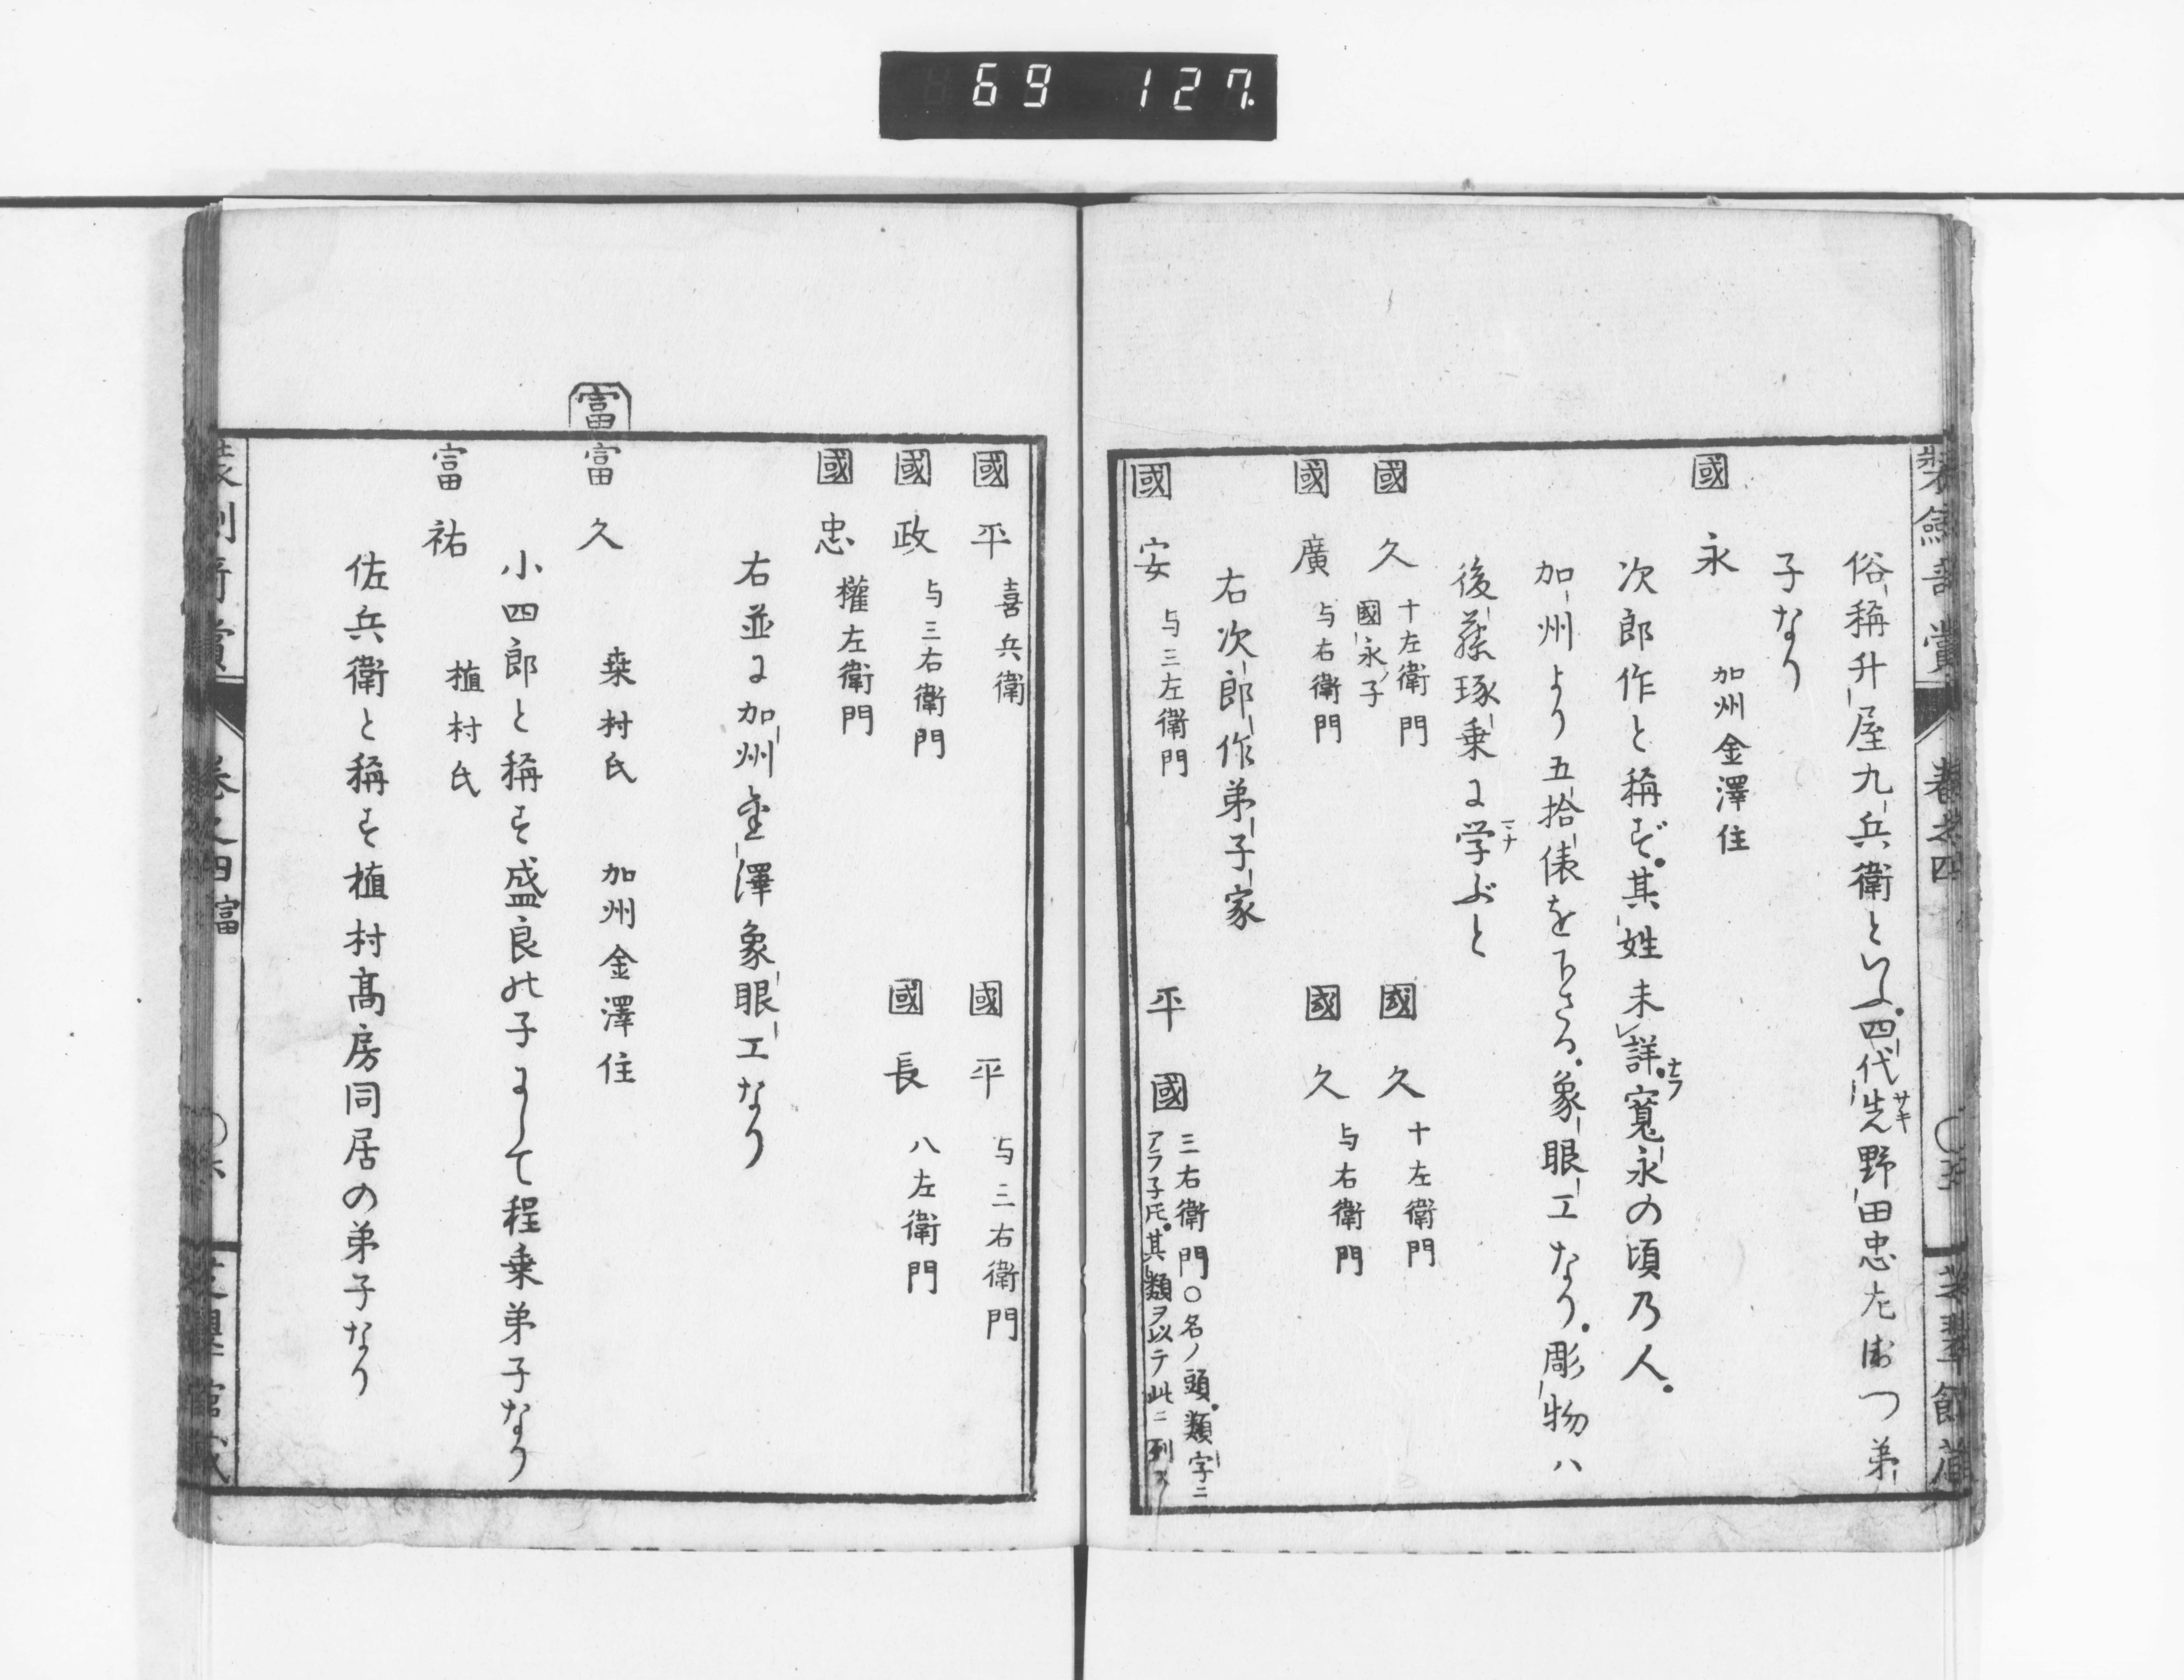 69 127
俗稱升屋九兵衛といふ。四代先サキ野田忠左衛つ弟
子なり
國永 加州金澤住
次郎作と稱ず。其姓未詳ナラ。寬永の頃乃人。
加州より五拾俵を下さる。象眼工なり。彫物ハ
後藤琢乗に学マナぶと
國久 十左衛門 國永子 國久 十左衛門
國廣 与右衛門 國久 与右衛門
右次郎作弟子家
國安 与三左衛門 平國 三右衛門○名ノ頭。類字ニ
アラ子𪜈。其類ヲ以テ此ニ列ス
國平 喜兵衛 國平 与三右衛門
國政 与三右衛門 國長 八左衛門
國忠 權左衛門
右並に加州金澤象眼工なり
富
富久 桒村氏 加州金澤住
小四郎と稱す盛良の子にして程乗弟子なり
富祐 植村氏
佐兵衛と稱す植村髙房同居の弟子なり
卷之四 富